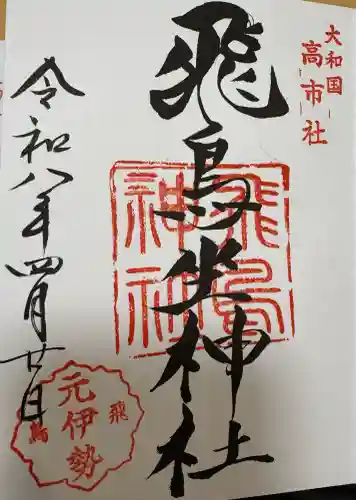 大和国
高市社
飛鳥坐神社
飛鳥
神社
令和八年四月廿日
元伊勢
飛鳥